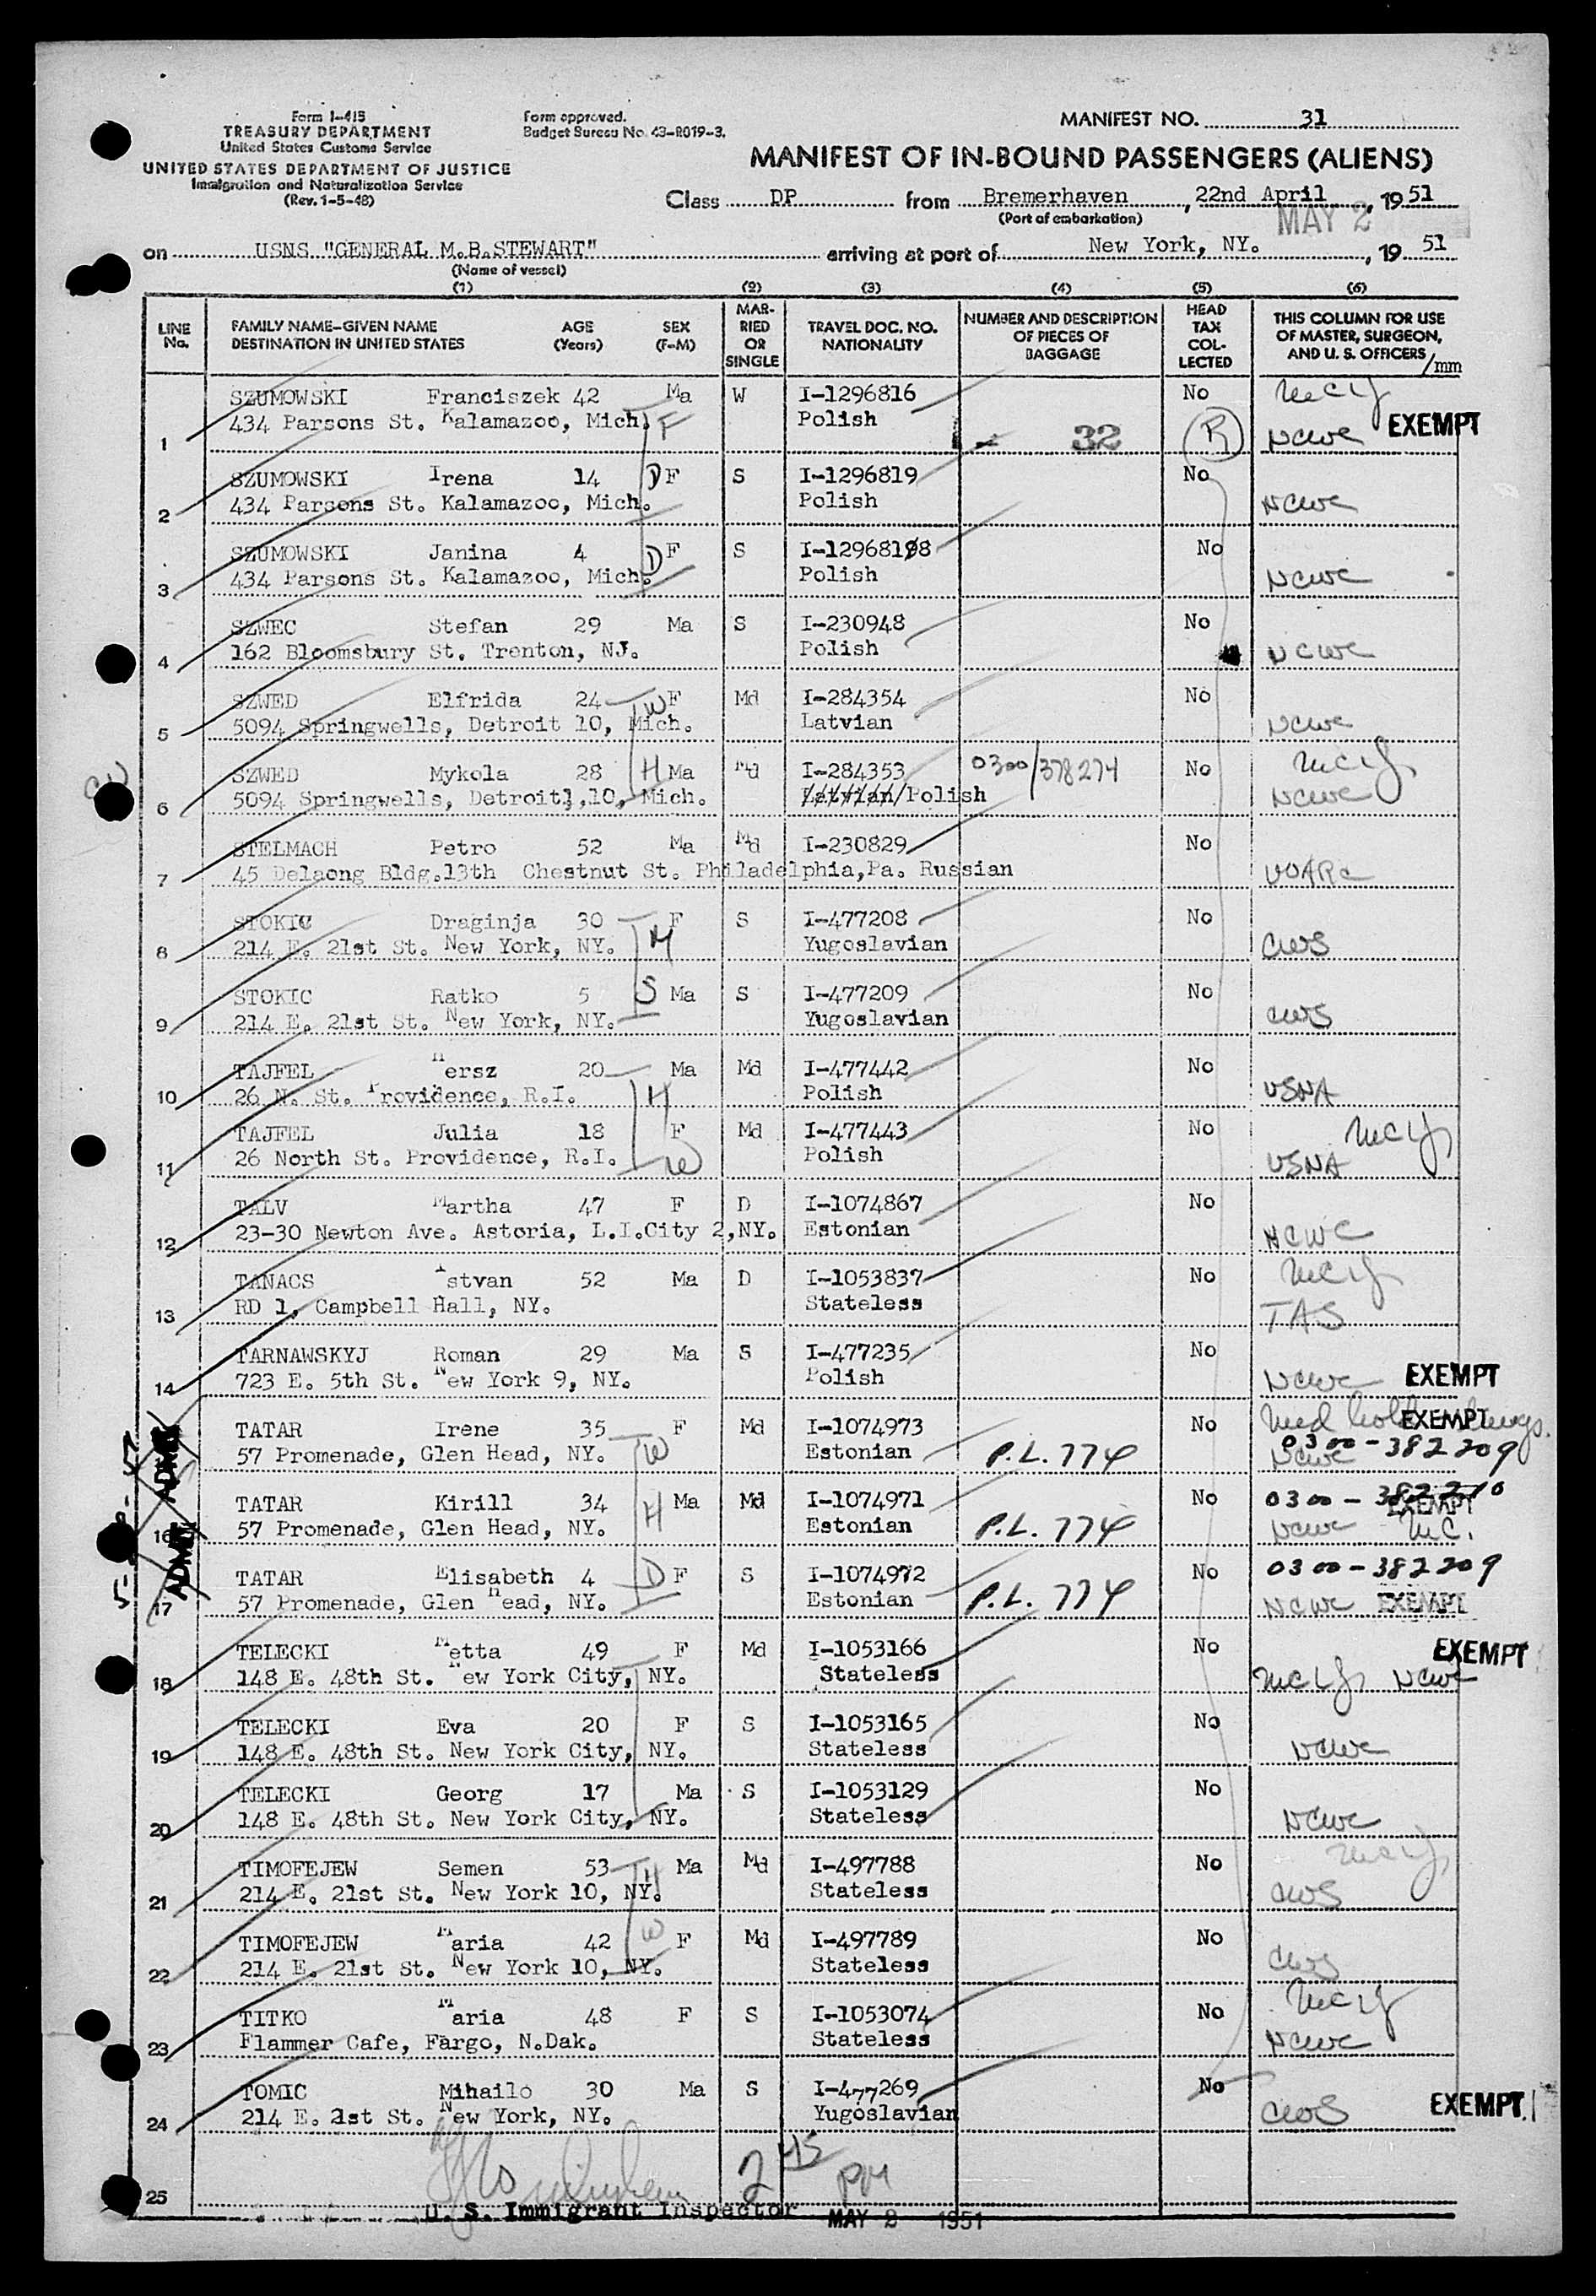 Form I-415
TREASURY DEPARTMENT
United States Customs Service
UNITED STATES DEPARTMENT OF JUSTICE
Immigration and Naturalization Service
(Rev. 1-5-48)
Form approved.
Budget Bureau No. 43-R019-3.
MANIFEST NO. 31
MANIFEST OF IN-BOUND PASSENGERS (ALIENS)
Class DP from Bremerhaven, 22nd April, 1951
(Port of embarkation)
MAY 2
on USNS "GENERAL M.B.STEWART" arriving at port of New York, NY., 19 51
(Name of vessel)
(1) (2) (3) (4) (5) (6)
LINE No.
FAMILY NAME-GIVEN NAME AGE (Years) SEX (F-M)
DESTINATION IN UNITED STATES
MARRIED OR SINGLE
TRAVEL DOC. NO. NATIONALITY
NUMBER AND DESCRIPTION OF PIECES OF BAGGAGE
HEAD TAX COLLECTED
THIS COLUMN FOR USE OF MASTER, SURGEON, AND U. S. OFFICERS /mm
SZUMOWSKI Franciszek 42 Ma W I-1296816 No
1 434 Parsons St. Kalamazoo, Mich. F Polish 32 R NCWC EXEMPT
SZUMOWSKI Irena 14 D F S I-1296819 No
2 434 Parsons St. Kalamazoo, Mich. Polish NCWC
SZUMOWSKI Janina 4 D F S I-12968198 No
3 434 Parsons St. Kalamazoo, Mich. Polish NCWC
SZWEC Stefan 29 Ma S I-230948 No
4 162 Bloomsbury St. Trenton, NJ. Polish NCWC
SZWED Elfrida 24 W F Md I-284354 No
5 5094 Springwells, Detroit 10, Mich. Latvian NCWC
SZWED Mykola 28 H Ma Md I-284353 0300/378274 No
6 5094 Springwells, Detroit1,10, Mich. Latvian/Polish NCWC
STELMACH Petro 52 Ma Md I-230829 No
7 45 Delaong Bldg.13th Chestnut St. Philadelphia,Pa. Russian UUARC
STOKIC Draginja 30 F S I-477208 No
8 214 E. 21st St. New York, NY. M Yugoslavian CWS
STOKIC Ratko 5 S Ma S I-477209 No
9 214 E. 21st St. New York, NY. Yugoslavian CWS
TAJFEL Hersz 20 Ma Md I-477442 No
10 26 N. St. Providence, R.I. H Polish USNA
TAJFEL Julia 18 F Md I-477443 No
11 26 North St. Providence, R.I. W Polish USNA
TALV Martha 47 F D I-1074867 No
12 23-30 Newton Ave. Astoria, L.I.City 2,NY. Estonian NCWC
TANACS Istvan 52 Ma D I-1053837 No
13 RD 1, Campbell Hall, NY. Stateless TAS
TARNAWSKYJ Roman 29 Ma S I-477235 No
14 723 E. 5th St. New York 9, NY. Polish NCWC EXEMPT
TATAR Irene 35 F Md I-1074973 No Med hold EXEMPT
57 Promenade, Glen Head, NY. W Estonian P.L. 774 0300-382209 NCWC
ADMEN
TATAR Kirill 34 Ma Md I-1074971 No 0300-382210 EXEMPT
16 57 Promenade, Glen Head, NY. H Estonian P.L. 774 NCWC MC.
ADMEN
TATAR Elisabeth 4 D F S I-1074972 No 0300-382209
17 57 Promenade, Glen Head, NY. Estonian P.L. 774 NCWC EXEMPT
TELECKI Metta 49 F Md I-1053166 No EXEMPT
18 148 E. 48th St. New York City, NY. Stateless NCWC
TELECKI Eva 20 F S I-1053165 No
19 148 E. 48th St. New York City, NY. Stateless NCWC
TELECKI Georg 17 Ma S I-1053129 No
20 148 E. 48th St. New York City, NY. Stateless NCWC
TIMOFEJEW Semen 53 H Ma Md I-497788 No
21 214 E. 21st St. New York 10, NY. Stateless CWS
TIMOFEJEW Maria 42 W F Md I-497789 No
22 214 E. 21st St. New York 10, NY. Stateless CWS
TITKO Maria 48 F S I-1053074 No
23 Flammer Cafe, Fargo, N.Dak. Stateless NCWC
TOMIC Mihailo 30 Ma S I-477269 No
24 214 E. 21st St. New York, NY. Yugoslavian CWS EXEMPT
2 45 PM
25
U. S. Immigrant Inspector MAY 2 1951